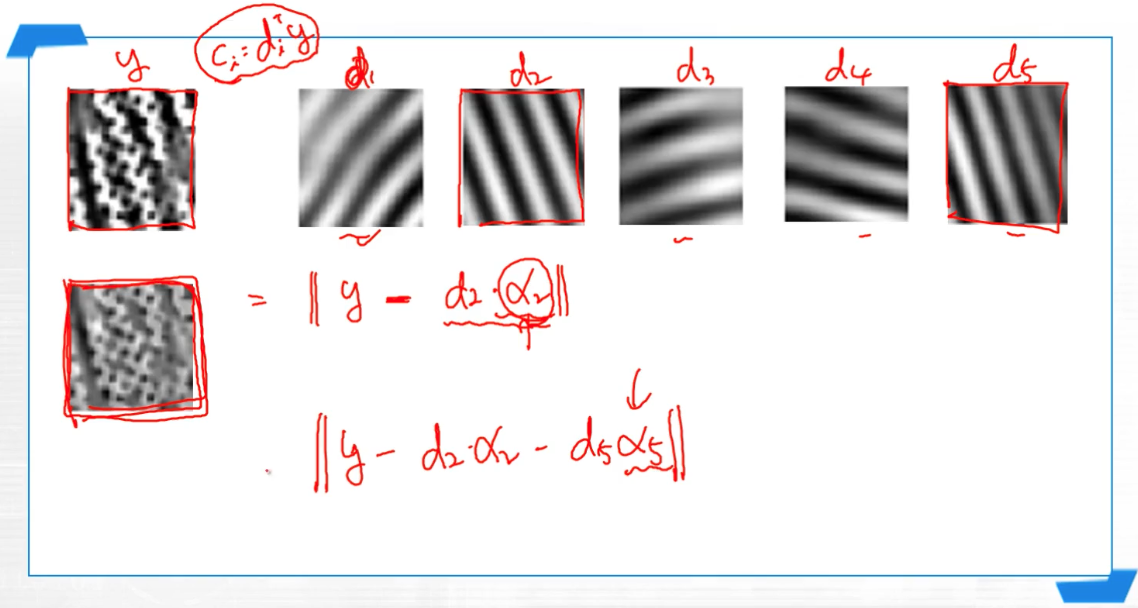 cᵢ = dᵢᵀy
y d₁ d₂ d₃ d₄ d₅
= ‖ y − d₂·α₂ ‖
‖ y − d₂·α₂ − d₅α₅ ‖